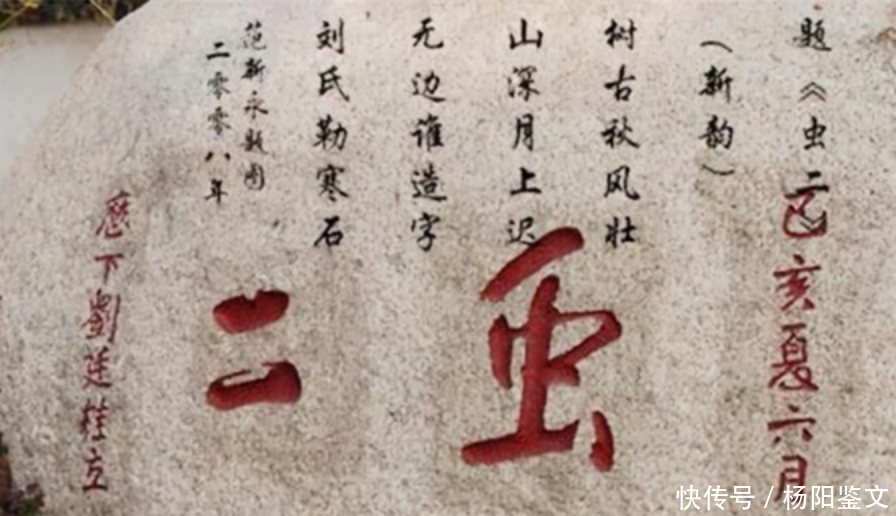 题《虫二》
（新韵）
树古秋风壮
山深月上迟
无边谁造字
刘氏勒寒石
范新永题图
二零零八年
己亥夏六月
虫二
歷下劉廷桂立
快传号 / 杨阳鉴文